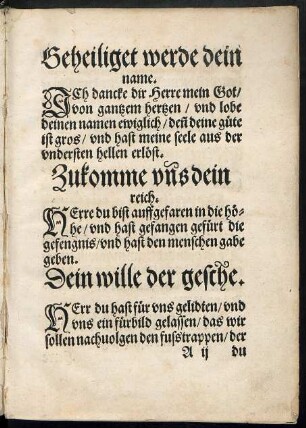 Geheiliget werde dein
name.
ICh dancke dir Herre mein Got/
von gantzem hertzen / vnd lobe
deinen namen ewiglich / deñ deine güte
ist gros / vnd hast meine seele aus der
vndersten hellen erlöst.
Zukomme vñs dein
reich.
HErre du bist auffgefaren in die hö-
he / vnd hast gefangen gefürt die
gefengnis / vnd hast den menschen gabe
geben.
Dein wille der gesche.
HErr du hast für vns gelidten / vnd
vns ein fürbild gelassen / das wir
sollen nachuolgen den fusstrappen / der
A ij du